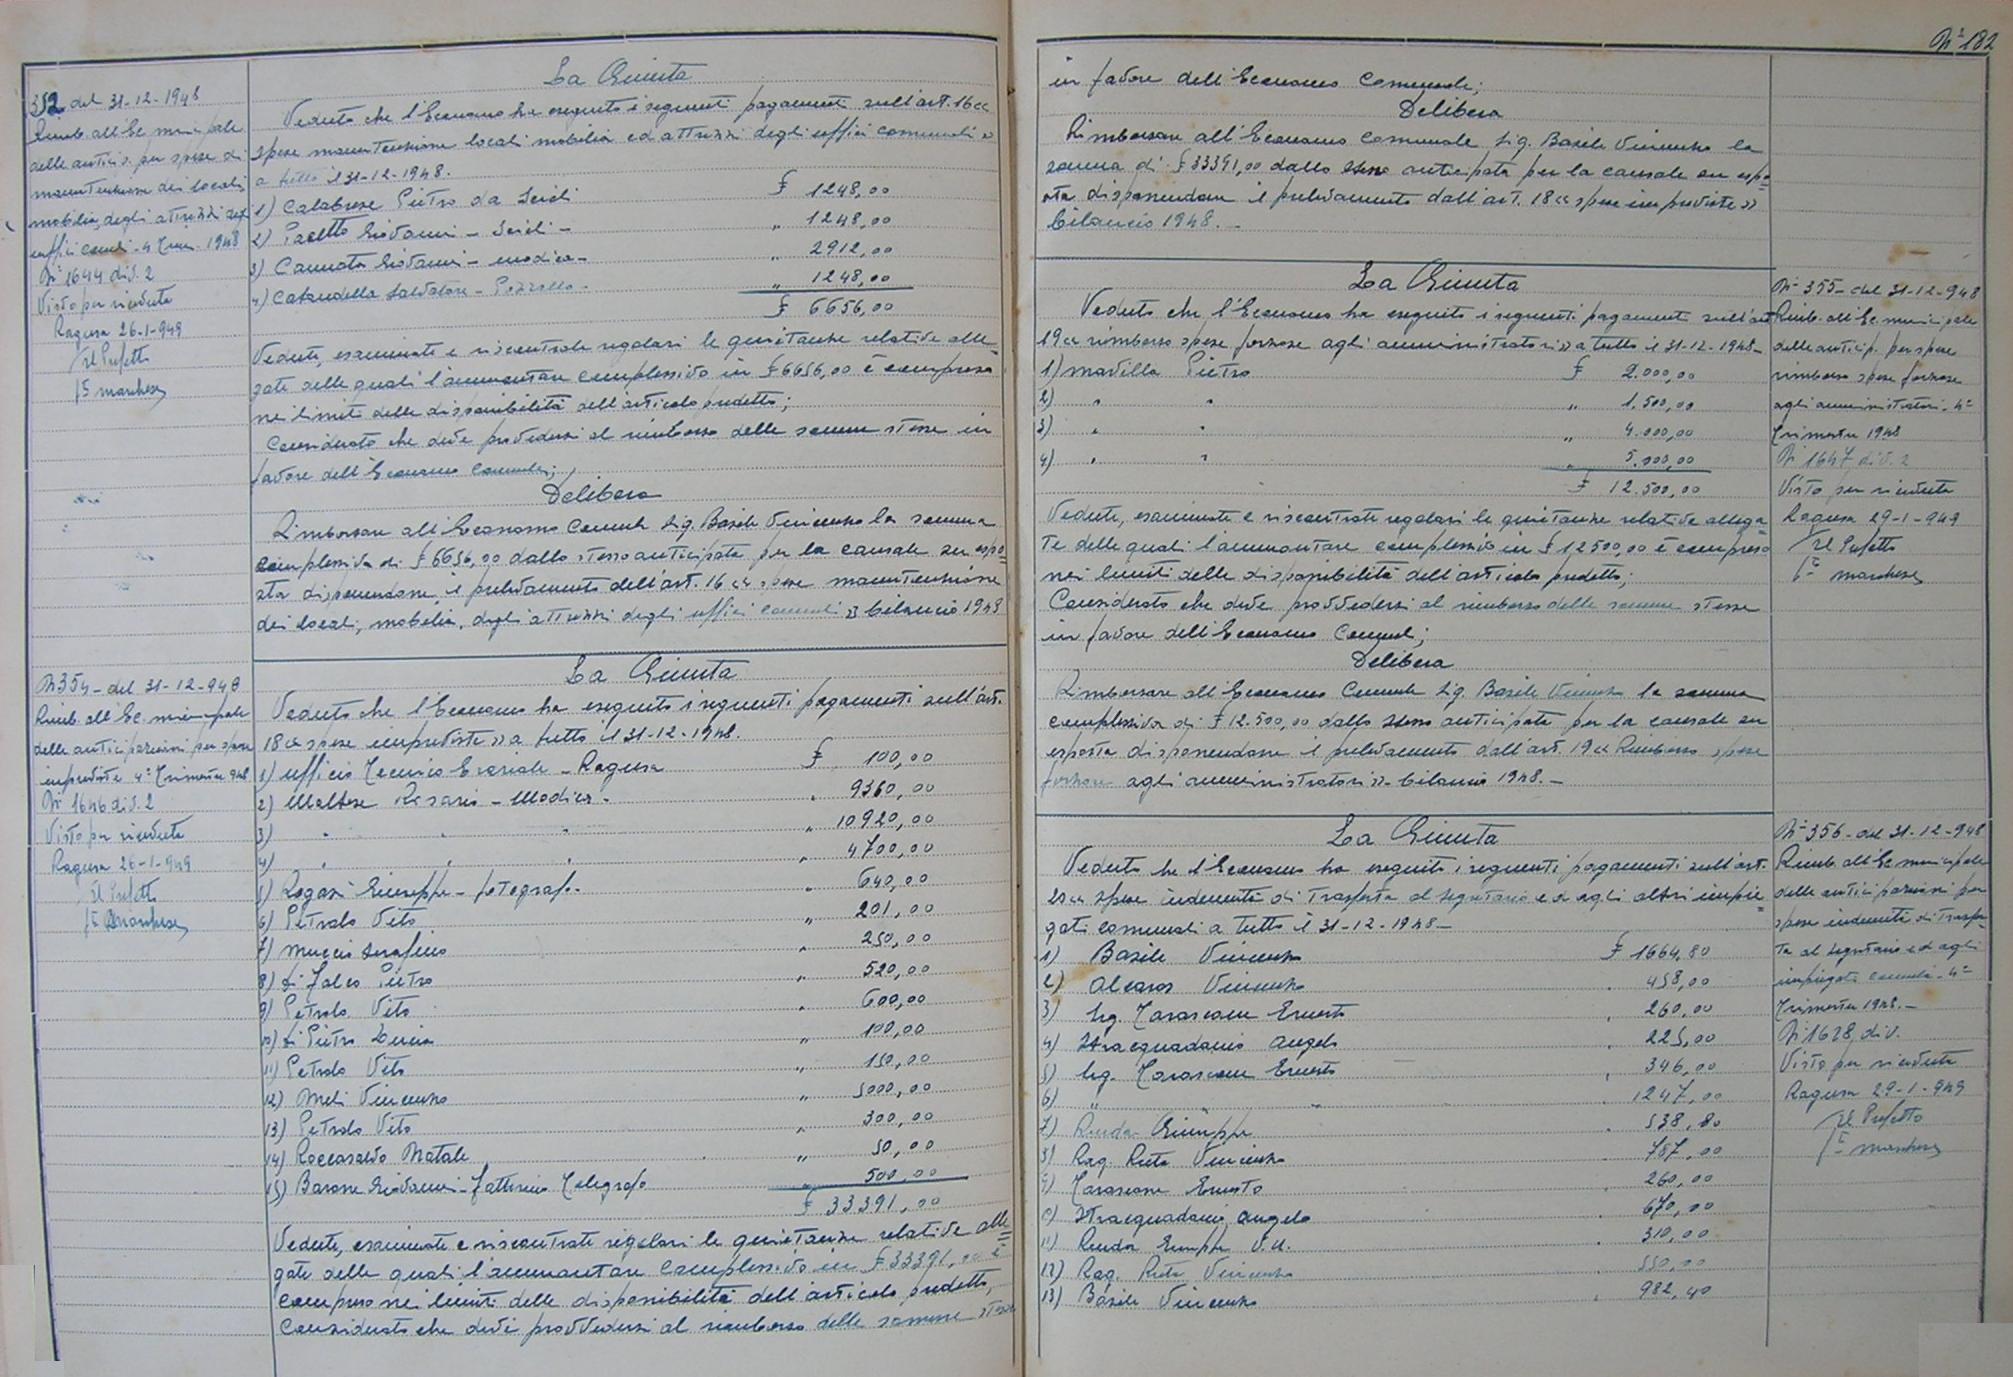 La Giunta
352 del 31-12-1948
Rimb. all'Ec. municipale
delle anticip. per spese di
manutenzione dei locali
mobilia, degli attrezzi degli
uffici comli - 4 Trim. 1948
N° 1644 div. 2
Visto per ricevuta
Ragusa 26-1-949
Il Prefetto
fto Marchese
Veduto che l'Economo ha eseguito i seguenti pagamenti sull'art. 16 <<
spese manutenzione locali mobilia ed attrezzi degli uffici comunali »
a tutto il 31-12-1948.
1) Calabrese Pietro da Scicli £ 1248,00
2) Pacetto Giovanni - Scicli - " 1248,00
3) Cannata Giovanni - Modica - " 2912,00
4) Cataudella Salvatore - Pozzallo - " 1248,00
£ 6656,00
Vedute, esaminate e riscontrate regolari le quietanze relative alle=
gate delle quali l'ammontare complessivo in £ 6656,00 è compreso
nei limiti delle disponibilità dell'articolo predetto;
Considerato che deve provvedersi al rimborso delle somme stesse in
favore dell'Economo Comunale;
Delibera
Rimborsare all'Economo Comunale Sig. Basile Vincenzo la somma
complessiva di £ 6656,00 dallo stesso anticipata per la causale su espo=
sta disponendone il prelevamento dell'art. 16 << spese manutenzione
dei locali, mobilia, degli attrezzi degli uffici comunali » bilancio 1948
La Giunta
N° 354 - del 31-12-948
Rimb. all'Ec. municipale
delle anticipazioni per spese
impreviste 4° Trimestre 948
N° 1646 div. 2
Visto per ricevuta
Ragusa 26-1-949
Il Prefetto
fto Marchese
Veduto che l'Economo ha eseguito i seguenti pagamenti sull'art.
18 << spese impreviste » a tutto il 31-12-1948.
1) Ufficio Tecnico Erariale - Ragusa £ 100,00
2) Maltese Rosario - Modica - " 9360,00
3) " " " " 10920,00
4) " " " " 4700,00
5) Ragusi Giuseppe - fotografo - " 640,00
6) Petralo Vito " 201,00
7) Muccio Serafino " 250,00
8) Di Falco Pietro " 520,00
9) Petralo Vito " 600,00
10) Di Pietro Lucia " 100,00
11) Petralo Vito " 150,00
12) Meli Vincenzo " 5000,00
13) Petralo Vito " 300,00
14) Roccasalvo Natale " 50,00
15) Barone Giovanni - fattorino Telegrafo " 500,00
£ 33391,00
Vedute, esaminate e riscontrate regolari le quietanze relative alle=
gate delle quali l'ammontare complessivo in £ 33391,00 è
compreso nei limiti delle disponibilità dell'articolo predetto,
Considerato che devi provvedersi al rimborso delle somme stesse
N° 182
in favore dell'Economo Comunale;
Delibera
Rimborsare all'Economo Comunale Sig. Basile Vincenzo la
somma di £ 33391,00 dallo stesso anticipata per la causale su espo=
sta disponendone il prelevamento dall'art. 18 << spese impreviste »
bilancio 1948. -
La Giunta
N° 355 - del 31-12-948
Rimb. all'Ec. municipale
delle anticip. per spese
rimborso spese forzose
agli amministratori - 4°
Trimestre 1948
N° 1647 div. 2
Visto per ricevuta
Ragusa 29-1-949
Il Prefetto
fto Marchese
Veduto che l'Economo ha eseguito i seguenti pagamenti sull'art.
19 << rimborso spese forzose agli amministratori » a tutto il 31-12-1948 -
1) Mavilla Pietro £ 2.000,00
2) " " " 1.500,00
3) " " " 4.000,00
4) " " " 5.000,00
£ 12.500,00
Vedute, esaminate e riscontrate regolari le quietanze relative allega=
te delle quali l'ammontare complessivo in £ 12500,00 è compreso
nei limiti delle disponibilità dell'articolo predetto;
Considerato che deve provvedersi al rimborso delle somme stesse
in favore dell'Economo Comunale;
Delibera
Rimborsare all'Economo Comunale Sig. Basile Vincenzo la somma
complessiva di £ 12.500,00 dallo stesso anticipata per la causale su
esposta disponendone il prelevamento dall'art. 19 << Rimborso spese
forzose agli amministratori » bilancio 1948. -
La Giunta
N° 356 - del 31-12-948
Rimb. all'Ec. municipale
delle anticipazioni per
spese indennità di traspor=
ta al Segretario e ad agli
impiegati comunali - 4°
Trimestre 1948. -
N° 1628 div.
Visto per ricevuta
Ragusa 29-1-949
Il Prefetto
fto Marchese
Veduto che l'Economo ha eseguito i seguenti pagamenti sull'art.
20 << spese indennità di trasferta al segretario e ad agli altri impie=
gati comunali a tutto il 31-12-1948 -
1) Basile Vincenzo £ 1664,80
2) Alcaros Vincenzo " 458,00
3) Sig. Tarascone Ernesto " 260,00
4) Stracquadanio Angelo " 225,00
5) Sig. Tarascone Ernesto " 346,00
6) " " " 1247,00
7) Renda Giuseppe " 538,80
8) Rag. Ruta Vincenzo " 787,00
9) Tarascone Ernesto " 260,00
10) Stracquadanio Angelo " 670,00
11) Renda Giuseppe V.U. " 310,00
12) Rag. Ruta Vincenzo 550,00
13) Basile Vincenzo " 982,40